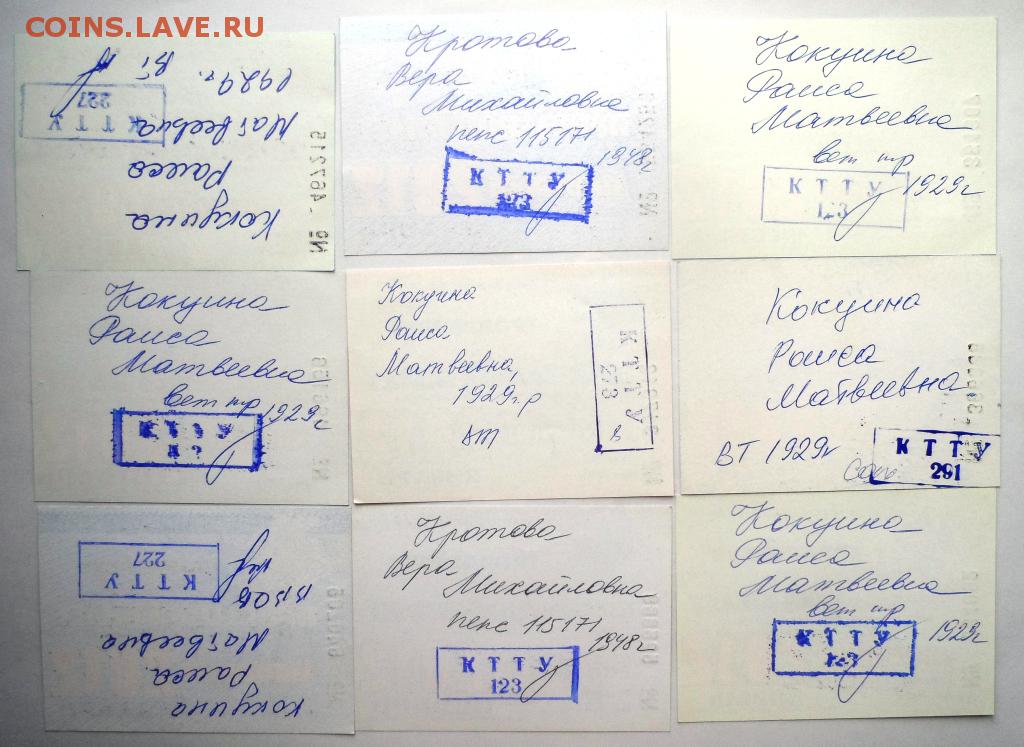 COINS.LAVE.RU
Кокуина
Раиса
Матвеевна
1929г. ВТ
КТТУ
227
№ 467215
Кротова
Вера
Михайловна
пенс 115171
1948г
КТТУ
123
№
Кокуина
Раиса
Матвеевна
вет тр
1929г
КТТУ
123
Кокуина
Раиса
Матвеевна
вет тр
1929г
КТТУ
Кокуина
Раиса
Матвеевна,
1929г.р
вт
КТТУ
273
в
Кокуина
Раиса
Матвеевна
ВТ 1929г
КТТУ
291
Кокуина
Раиса
Матвеевна
КТТУ
227
Кротова
Вера
Михайловна
пенс 115171
1948г
КТТУ
123
№
Кокуина
Раиса
Матвеевна
вет тр
1929г
КТТУ
123